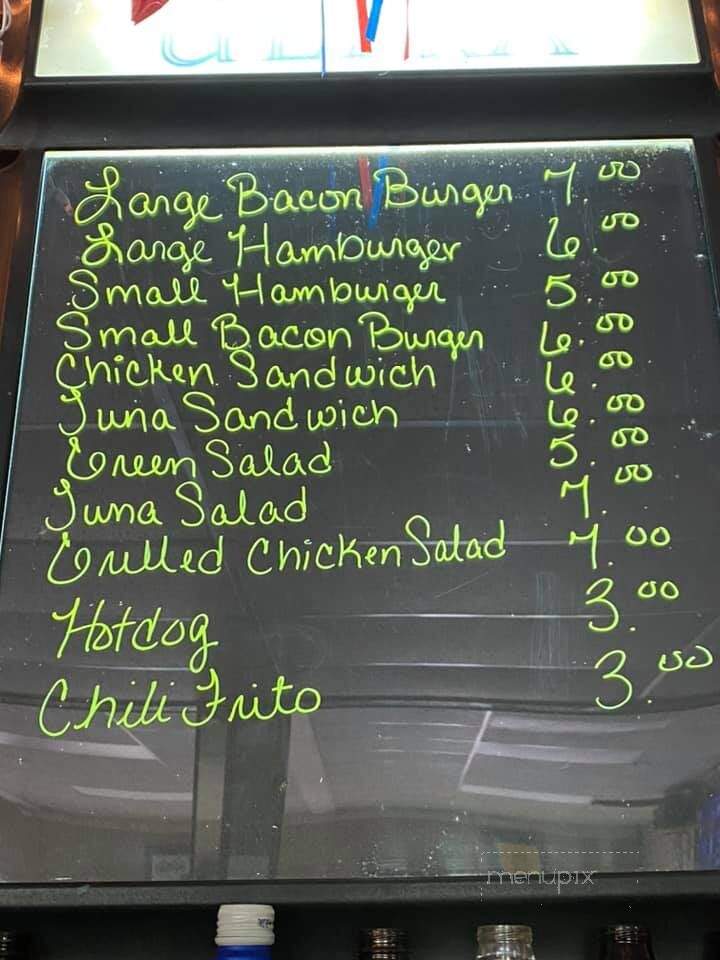 Large Bacon Burger 7.00
Large Hamburger 6.00
Small Hamburger 5.00
Small Bacon Burger 6.00
Chicken Sandwich 6.00
Tuna Sandwich 6.00
Green Salad 5.00
Tuna Salad 7.00
Grilled Chicken Salad 7.00
Hotdog 3.00
Chili Frito 3.00
menupix